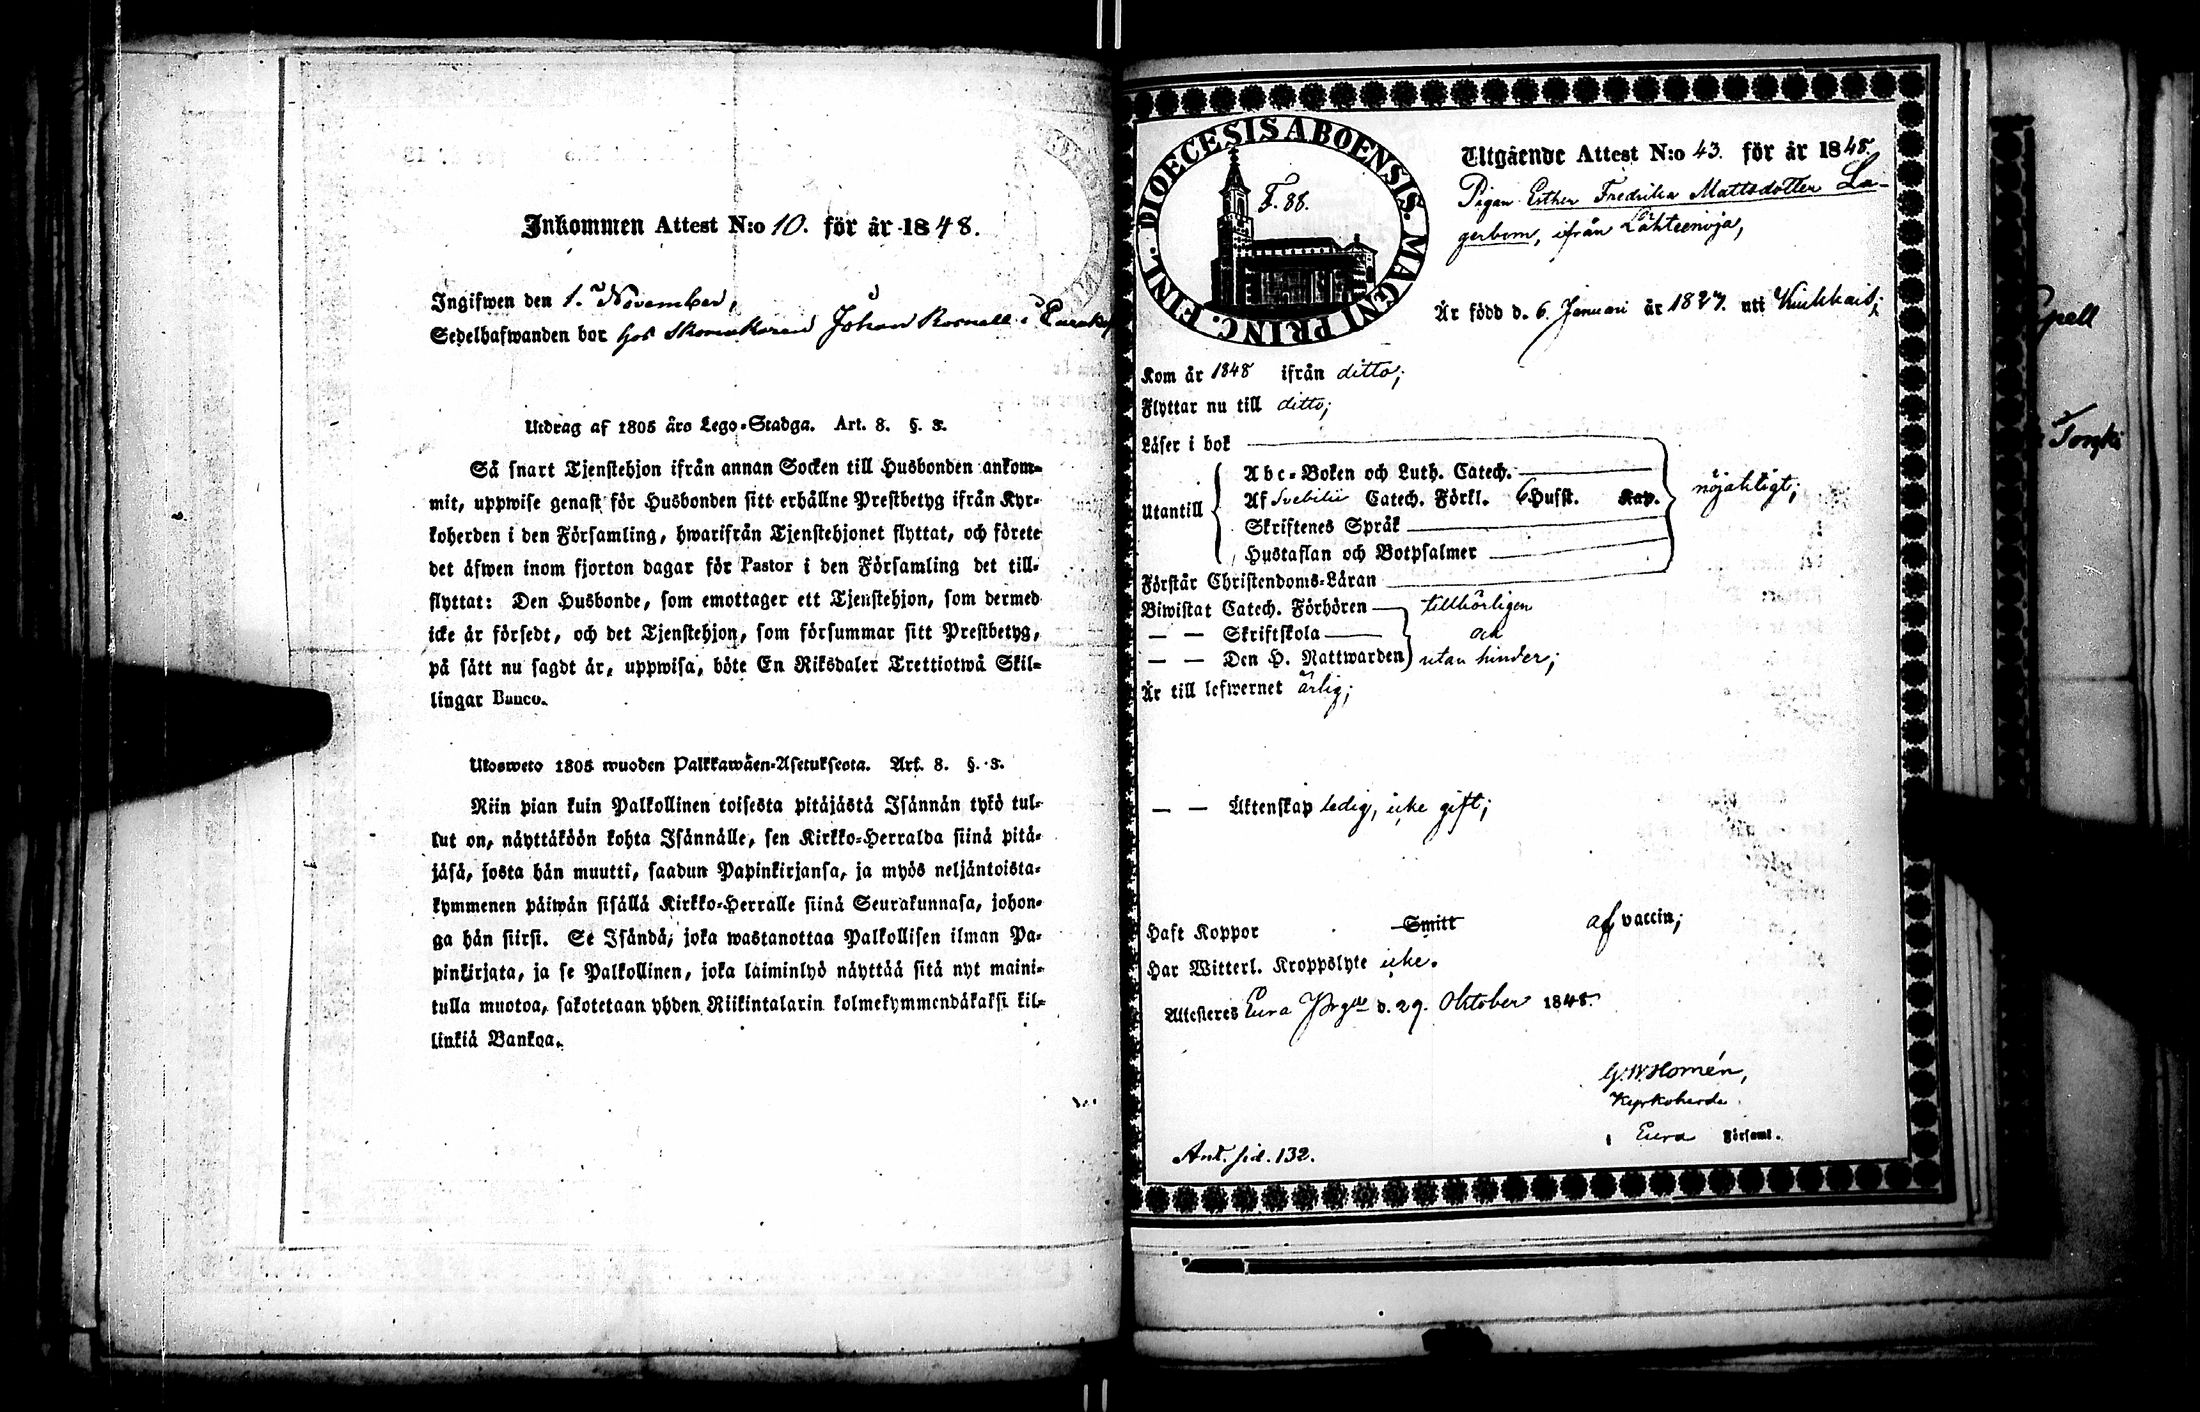 Inkommen Attest N:o 10. för år 1848.
Ingifwen den 1. November,
Sedelhafwanden bor hos Skomakaren Johan Rosnell i
Utdrag af 1805 års Lego-Stadga. Art. 8. §. 3.
Så snart Tjenstehjon ifrån annan Socken till Husbonden ankom-
mit, uppwise genast för Husbonden sitt erhållne Prestbetyg ifrån Kyr-
koherden i den Församling, hwarifrån Tjenstehjonet flyttat, och förete
det äfwen inom fjorton dagar för Pastor i den Församling det till-
flyttat: Den Husbonde, som emottager ett Tjenstehjon, som dermed
icke är försedt, och det Tjenstehjon, som försummar sitt Prestbetyg,
på sätt nu sagdt är, uppwisa, böte En Riksdaler Trettiotwå Skil-
lingar Banco.
Ulosweto 1805 wuoden Palkkawäen-Asetuksesta. Art. 8. §. 3.
Niin pian kuin Palkollinen toisesta pitäjästä Isännän tykö tul-
lut on, näyttäköön kohta Isännälle, sen Kirkko-Herralda siinä pitä-
jäsä, josta hän muutti, saadun Papinkirjansa, ja myös neljäntoista-
kymmenen päiwän sisällä Kirkko-Herralle siinä Seurakunnasa, johon-
ga hän siirsi. Se Isändä, joka wastanottaa Palkollisen ilman Pa-
pinkirjata, ja se Palkollinen, joka laiminlyö näyttää sitä nyt maini-
tulla muotoa, sakotetaan yhden Riikintalarin kolmekymmendäkaksi kil-
linkiä Bankoa.
DIOECESIS ABOENSIS. MAGNI PRINC. FINL.
F. 88.
Utgående Attest N:o 43. för år 1848.
Pigan Esther Fredrika Mattsdotter La-
gerbom, ifrån Lähteenoja,
Är född d. 6. Januari år 1827. uti
Kom år 1848 ifrån ditto;
Flyttar nu till ditto;
Läser i bok
Utantill
Abc-Boken och Luth. Catech.
Af Svebilii Catech. Förkl. 6 Husst. Kap.
Skriftenes Språk
Hustaflan och Botpsalmer
nöjaktigt;
Förstår Christendoms-Läran
Biwistat Catech. Förhören tillbörligen
— — Skriftskola och
— — Den H. Nattwarden utan hinder;
Är till lefwernet ärlig;
— — Äktenskap ledig, icke gift;
Haft Koppor Smitt af vaccin;
Har Witterl. Kroppslyte icke.
Attesteres Eura Prgll d. 29. Oktober 1848.
G.W. Homén,
Kyrkoherde
i Eura Församl.
Ant. sid. 132.